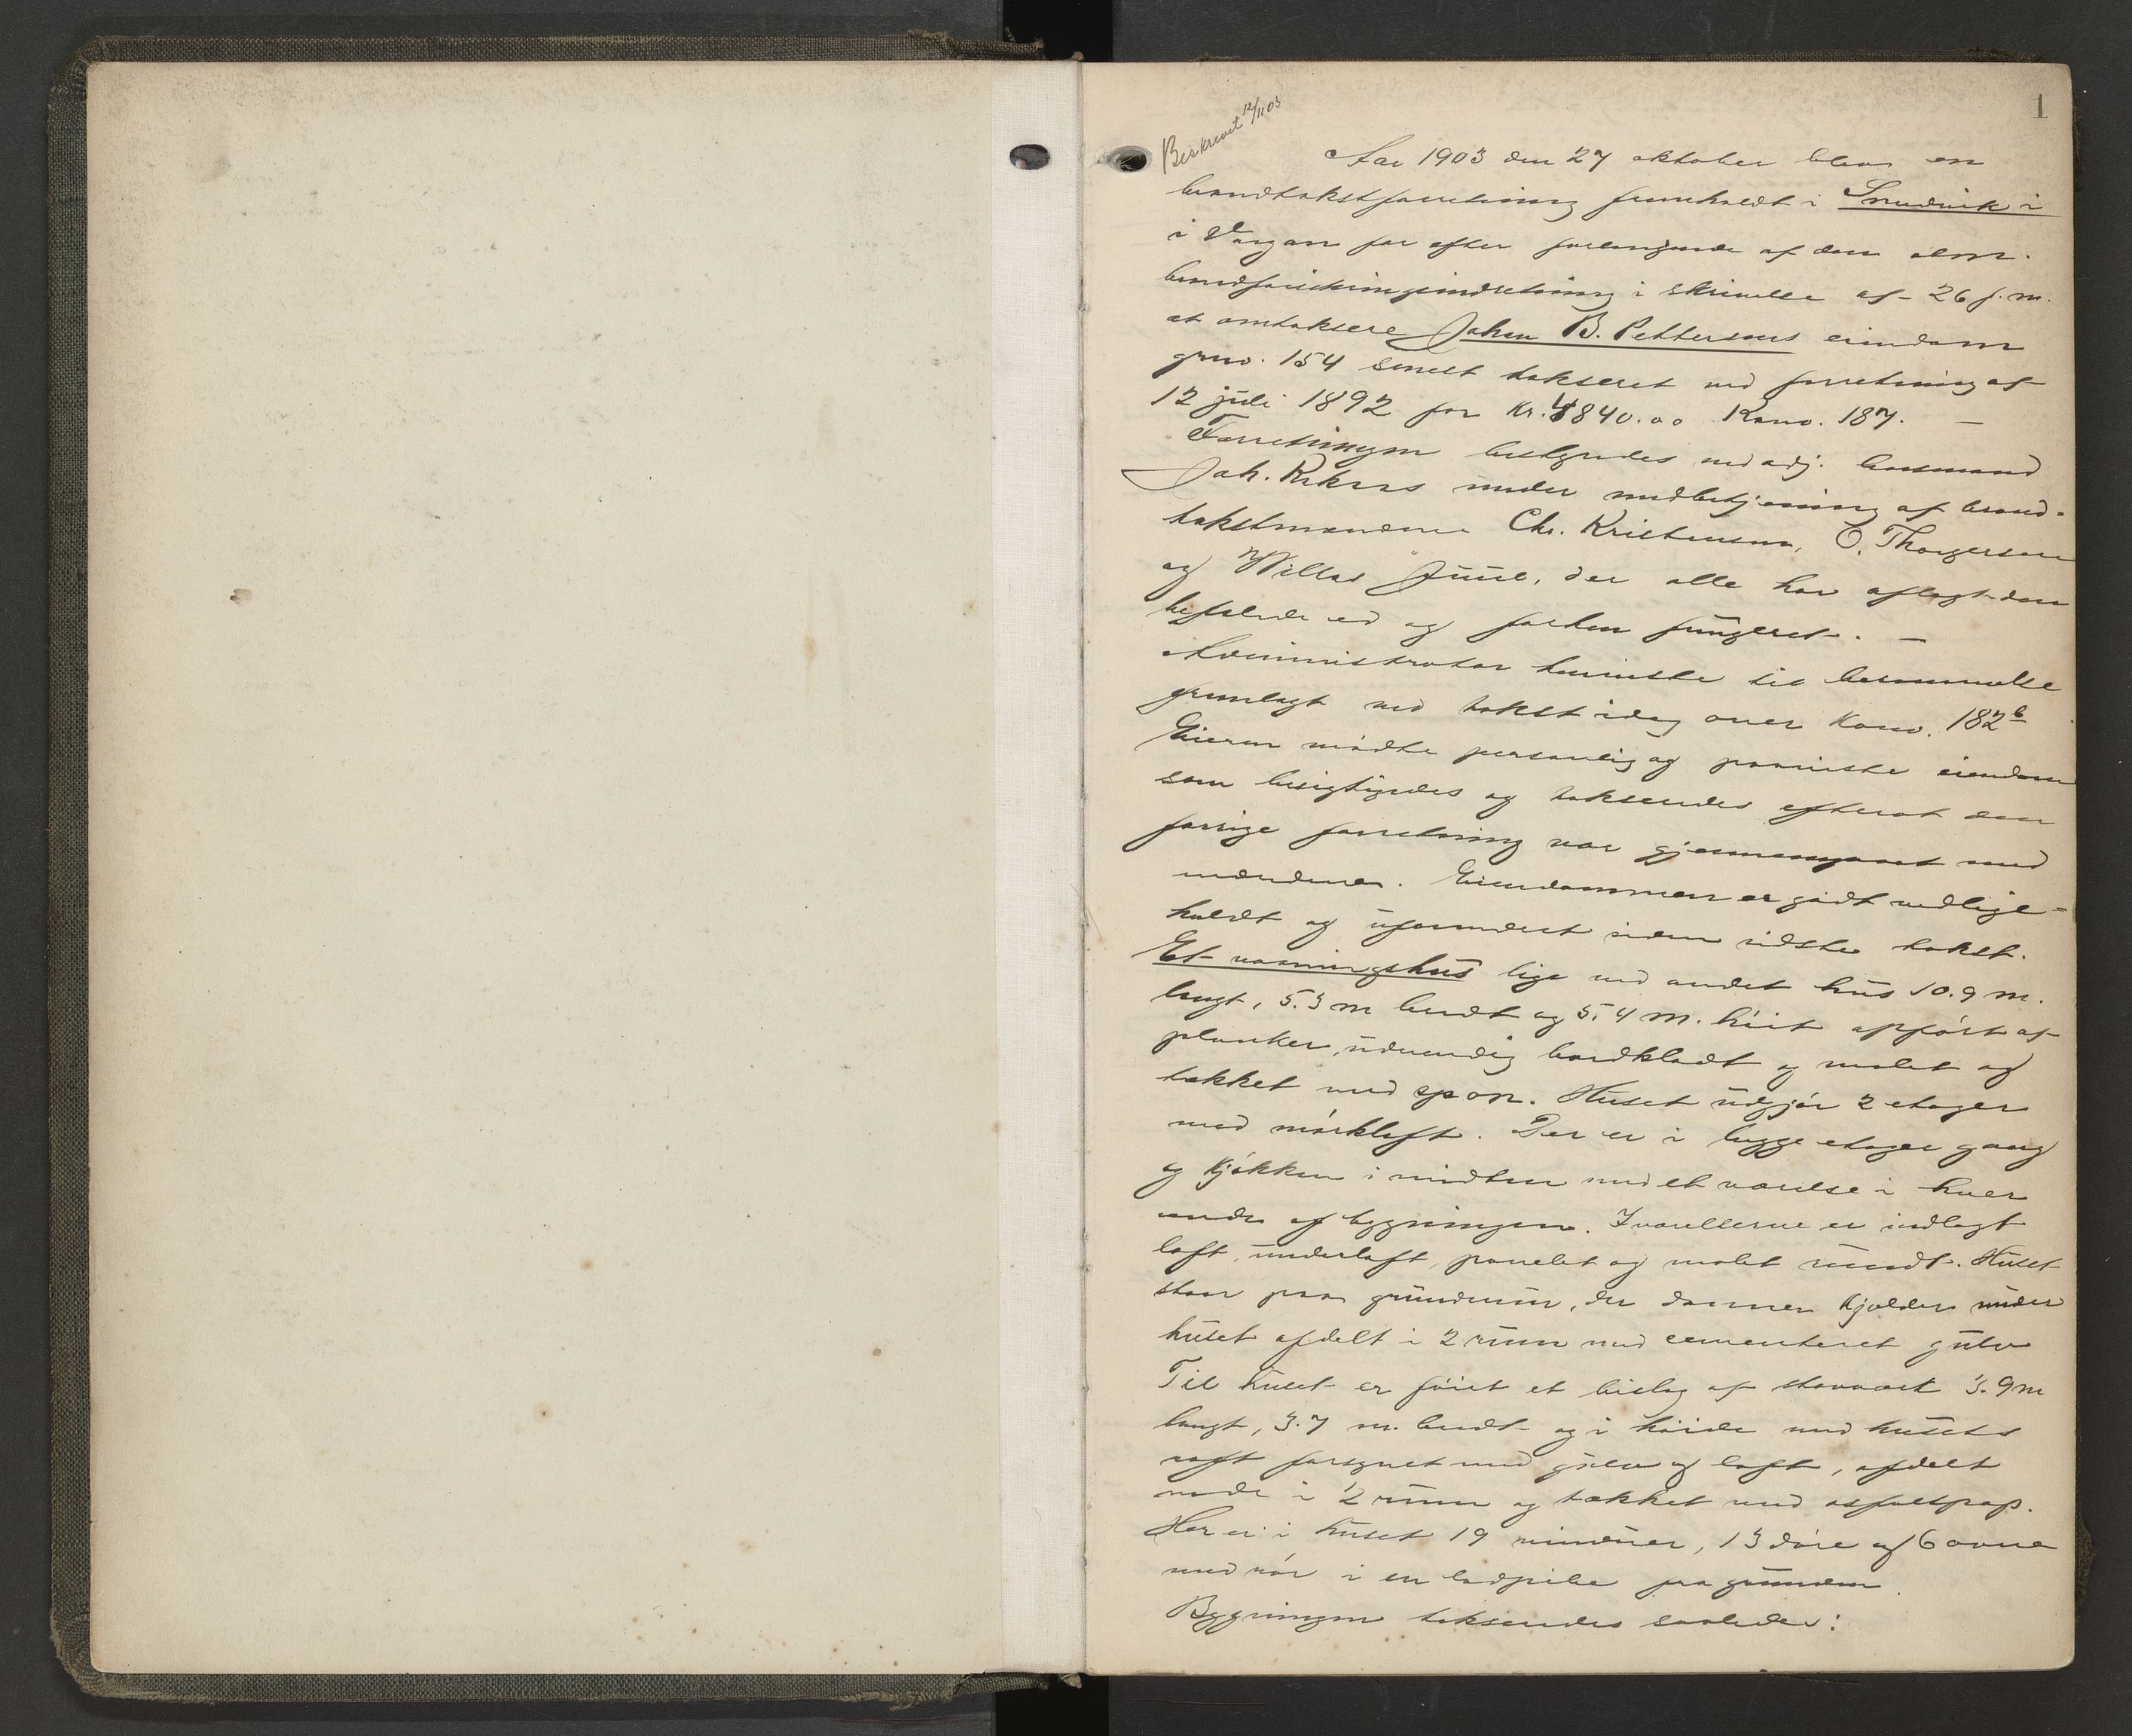 1
Beskrevet 12/11 03
Aar 1903 den 27 oktober blev en
brandtakstforretning fremholdt i Smedvik i
i Vaagan for efter forlangende af den alm.
brandforsikringsindretning i skrivelse af 26 f. m.
at omtaksere Johan B. Pettersens eiendom
grno. 154 senest takseret ved forretning af
12 juli 1892 for kr. 4840.00 Kano. 187. —
Forretningen bestyredes ved adj. lensmand
Joh. under medbetjening af brand-
takstmændene Chr. Kristensen, O. Thorgersen
og Willas Juul, der alle har aflagt den
befalede ed og forhen fungeret. —
Administrator henviste til berammelse
fremlagt ved takst idag over Kano. 182 b
Eieren mødte personlig og paaviste eiendom
som besigtigedes og takseredes efterat den
forrige forretning var gjennemgaaet med
mændene. Eiendommen er godt vedlige-
holdt og uforandret siden sidste takst.
Et vaaningshus lige ved andet hus 10.9 m.
langt, 5.3 m bredt og 5.4 m. høit opført af
planker, udvendig bordklædt og malet og
tækket med spon. Huset udgjør 2 etager
med mørkloft. Der er i begge etager gang
og kjøkken i midten med et værelse i hver
ende af bygningen. I værelserne er indlagt
loft, underloft, panelet og malet rundt. Huset
staar paa grundmur, der danner kjelder under
huset afdelt i 2 rum med cementeret gulv
Til huset er føiet et bislag af stavværk 3.9 m
langt, 3.7 m. bredt og i høide med husets
raft forsynet med gulv og loft, afdelt
nede i 2 rum og tækket med asfaltpap.
Her er i huset 19 vinduer, 13 døre og 6 ovne
med rør i en pibe fra grunden.
Bygningen takseredes saaledes: